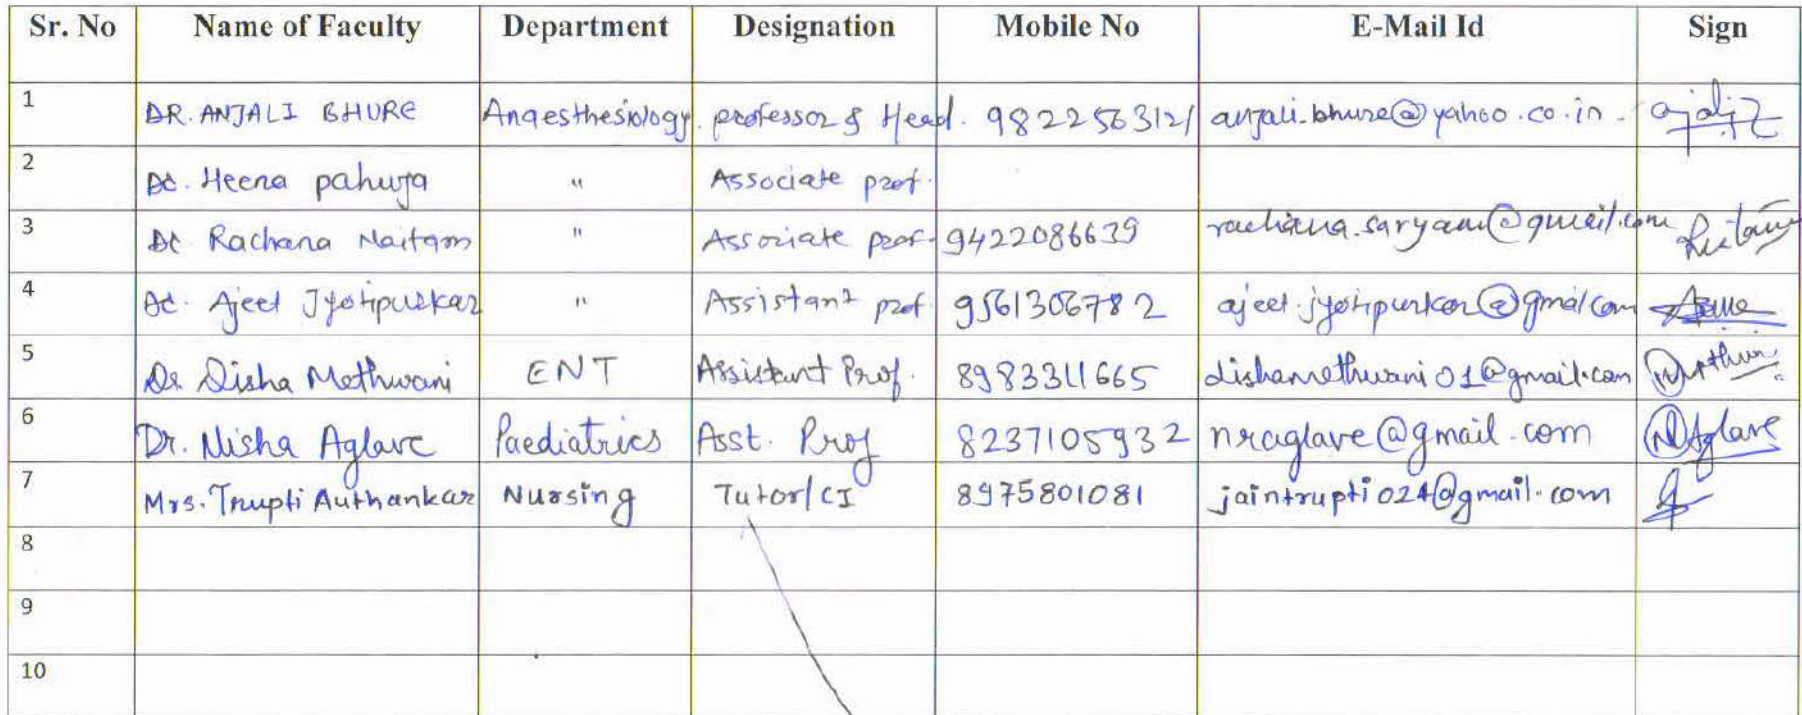 Sr. No Name of Faculty Department Designation Mobile No E-Mail Id Sign
1 DR. ANJALI BHURE Anaesthesiology. professor & Head. 9822563121 anjali.bhure@yahoo.co.in
2 Dr. Heena pahuja " Associate prof.
3 Dr Rachana Naitam " Associate prof. 9422086639 rachana.saryam@gmail.com
4 Dr. Ajeet Jyotipurkar " Assistant prof. 9561306782 ajeet.jyotipurkar@gmail.com
5 Dr Disha Methwani ENT Assistant Prof. 8983311665 dishamethwani01@gmail.com
6 Dr. Nisha Aglave Paediatrics Asst. Prof 8237105932 nraglave@gmail.com NAglave
7 Mrs. Trupti Authankar Nursing Tutor/CI 8975801081 jaintrupti024@gmail.com
8
9
10